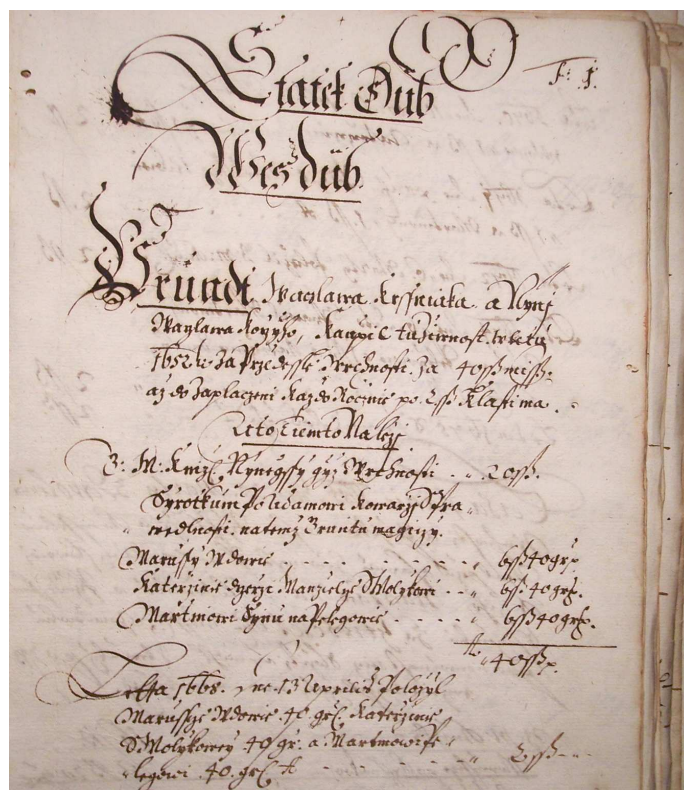 Statek Dub
F: 1.
Wes dub
Grundt Waczlawa Krssniaka a Nynj
Waczlawa, kaupil tu Ziwnost w letu
1652 za Przedessle Wrchnosti za 40 ssß miss:
az do Zaplaczeni Kazdo Rocznie po 2 ssß klasti ma.
Leto Tiemto Nalezi
G: M: Knizl: Nynegssy gyz Wrchnosti . . 20 ssß.
Syrotkum Po Adamowi Kowarzi Spra
wedlnosti na temz Gruntu magiczy.
Marussy Wdowie . . . . 6 ssß 40 grß
Katerzinie dczerzi Manzielze Molikowi . . 6 ssß 40 grß.
Martinowi Synu na Pelegowie . . . . 6 ssß 40 grß.
40 ssß
Letha 1668. Dne 13 Aprilis Polozyl
Marussze Wdowie 40 gr. Katerzinie
Molykowey 40 gr. a Martinowi Pe
legowi 40 gr. . . 2 ssß